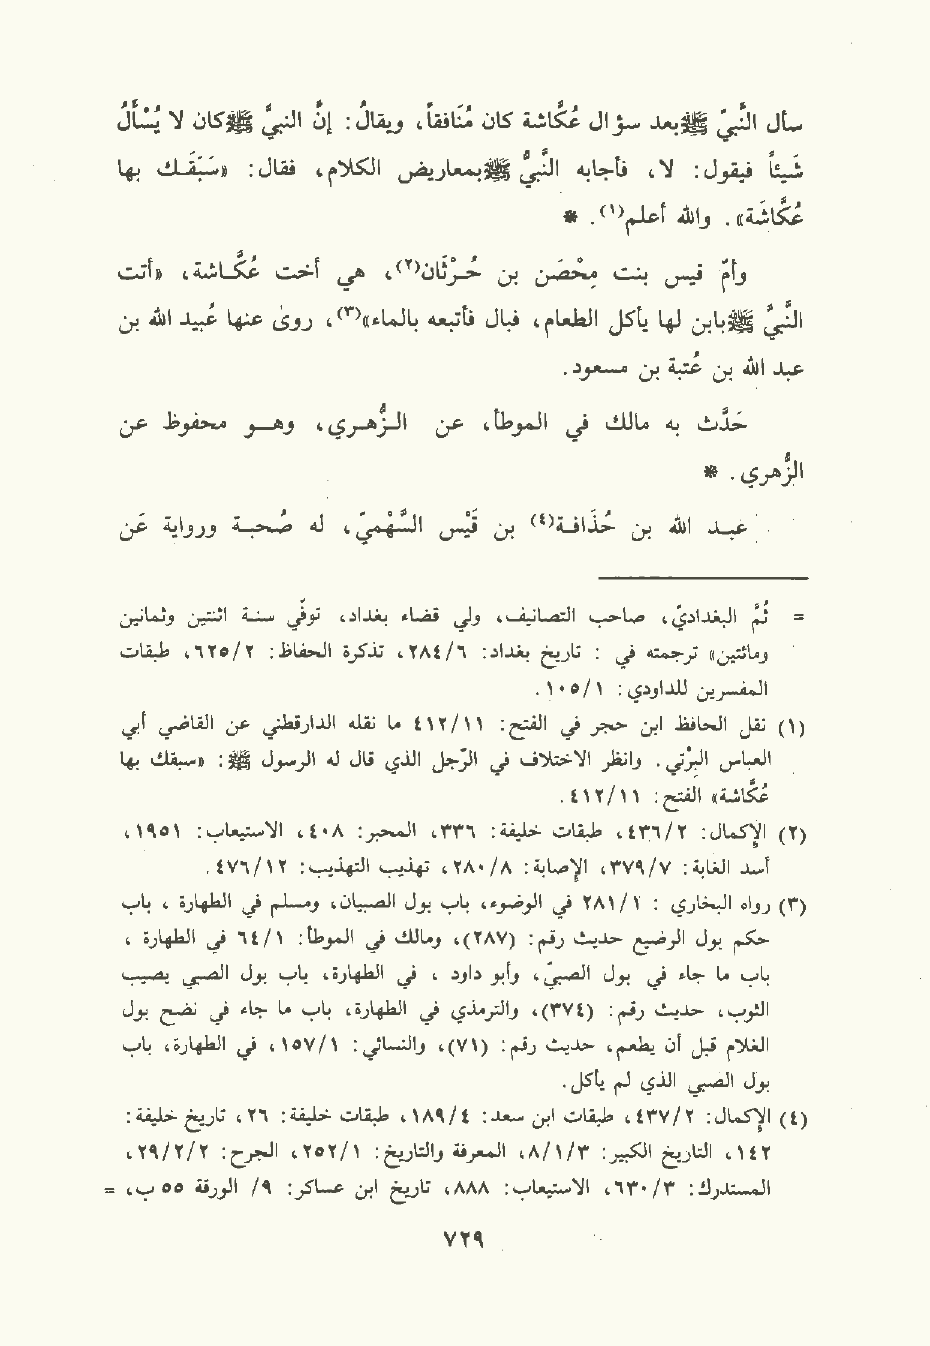 سأل النَّبيّ ﷺ بعد سؤال عُكَّاشة كان مُنَافقاً، ويقالُ: إنَّ النبيَّ ﷺ كان لا يُسْأَلُ
شَيئاً فيقول: لا، فأجابه النَّبيُّ ﷺ بمعاريض الكلام، فقال: «سَبَقَـك بها
عُكَّاشَة». والله أعلم(١). *
وأمّ قيس بنت مِحْصَن بن حُـرْثَان(٢)، هي أخت عُكَّـاشة، «أتت
النَّبيَّ ﷺ بابن لها يأكل الطعام، فبال فأتبعه بالماء»(٣)، روىٰ عنها عُبيد الله بن
عبد الله بن عُتبة بن مسعود.
حَدَّث به مالك في الموطأ، عن الـزُّهـري، وهــو محفوظ عن
الزُّهري. *
عبـد الله بن حُذَافـة(٤) بن قَيْس السَّهْميّ، له صُحبـة ورواية عَن
= ثُمَّ البغداديّ، صاحب التصانيف، ولي قضاء بغداد، توفّي سنـة اثنتين وثمانين
ومائتين» ترجمته في : تاريخ بغداد: ٢٨٤/٦، تذكرة الحفاظ: ٦٢٥/٢، طبقات
المفسرين للداودي: ١٠٥/١.
(١) نقل الحافظ ابن حجر في الفتح: ٤١٢/١١ ما نقله الدارقطني عن القاضي أبي
العباس البرْتي. وانظر الاختلاف في الرّجل الذي قال له الرسول ﷺ: «سبقك بها
عُكَّاشة» الفتح: ٤١٢/١١.
(٢) الإكمال: ٤٣٦/٢، طبقات خليفة: ٣٣٦، المحبر: ٤٠٨، الاستيعاب: ١٩٥١،
أسد الغابة: ٣٧٩/٧، الإصابة: ٢٨٠/٨، تهذيب التهذيب: ٤٧٦/١٢.
(٣) رواه البخاري : ٢٨١/١ في الوضوء، باب بول الصبيان، ومسلم في الطهارة ، باب
حكم بول الرضيع حديث رقم: (٢٨٧)، ومالك في الموطأ: ٦٤/١ في الطهارة ،
باب ما جاء في بول الصبيّ، وأبو داود ، في الطهارة، باب بول الصبي يصيب
الثوب، حديث رقم: (٣٧٤)، والترمذي في الطهارة، باب ما جاء في نضح بول
الغلام قبل أن يطعم، حديث رقم: (٧١)، والنسائي: ١٥٧/١، في الطهارة، باب
بول الصبي الذي لم يأكل.
(٤) الإكمال: ٤٣٧/٢، طبقات ابن سعد: ١٨٩/٤، طبقات خليفة: ٢٦، تاريخ خليفة:
١٤٢، التاريخ الكبير: ٨/١/٣، المعرفة والتاريخ: ٢٥٢/١، الجرح: ٢٩/٢/٢،
المستدرك: ٦٣٠/٣، الاستيعاب: ٨٨٨، تاريخ ابن عساكر: ٩/ الورقة ٥٥ ب، =
٧٢٩